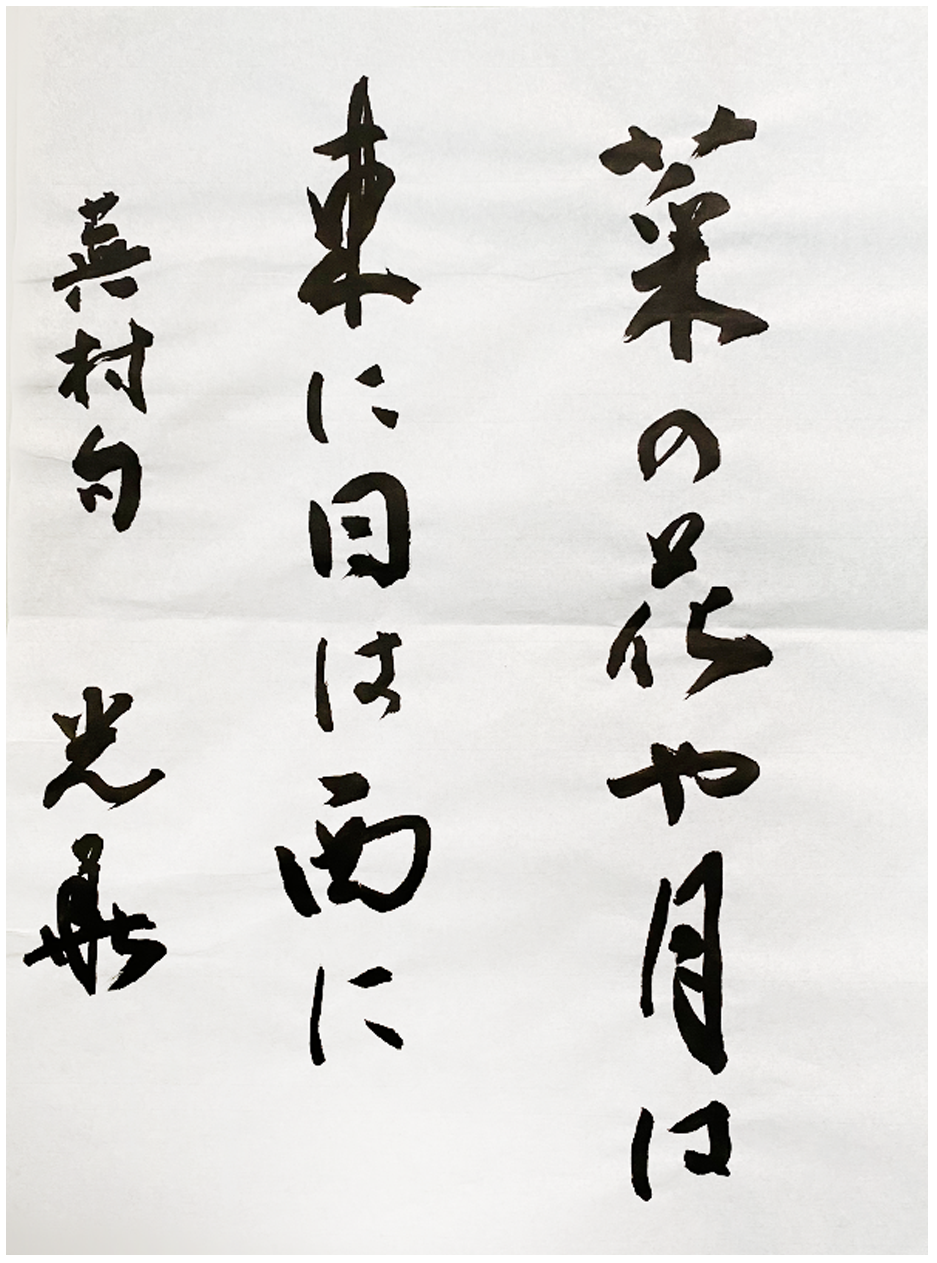 菜の花や月は
東に日は西に
蕪村句 光